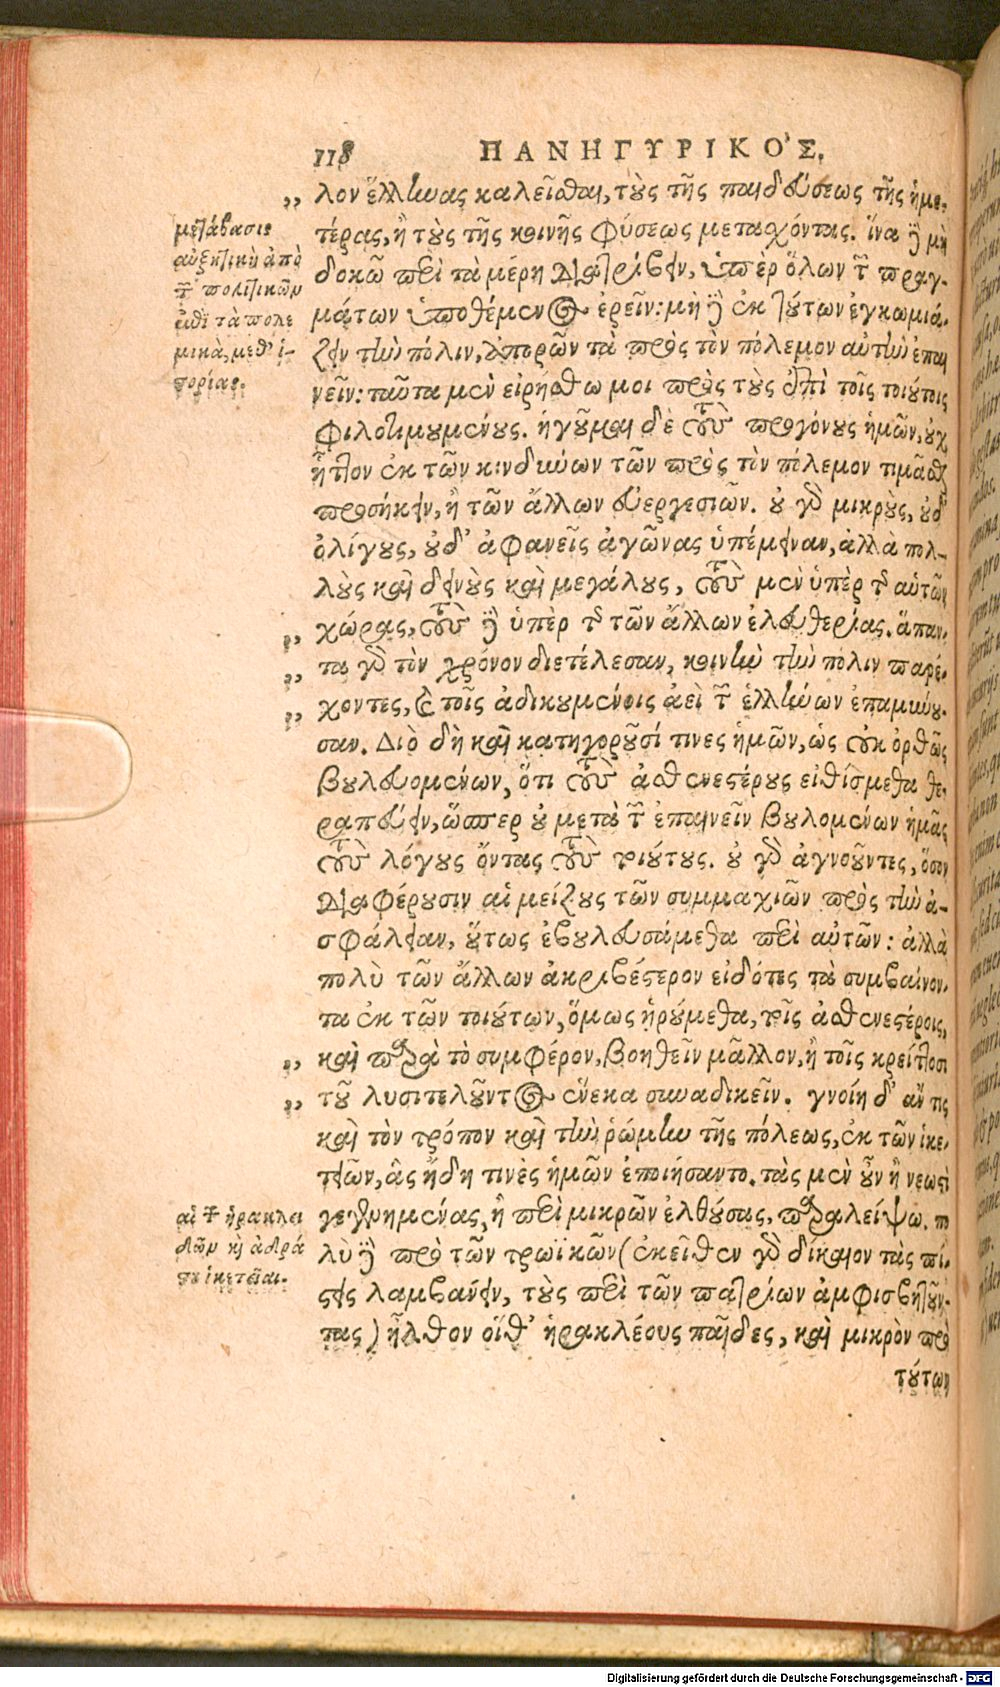 118 ΠΑΝΗΓΥΡΙΚΟ'Σ.
,, λον ἕλληνας καλεῖσθαι, τοὺς τῆς παιδεύσεως τῆς ἡμε-
τέρας, ἢ τοὺς τῆς κοινῆς φύσεως μετασχόντας. ἵνα δὲ μὴ
δοκῶ περὶ τὰ μέρη διατρίβειν, ὑπὲρ ὅλων τῶν πραγ-
μάτων ὑποθέμενος ἐρεῖν: μὴ δὲ ἐκ τούτων ἐγκωμιά-
ζειν τὴν πόλιν, ἀπορῶν τὰ πρὸς τὸν πόλεμον αὐτὴν ἐπαι
νεῖν: ταῦτα μὲν εἰρήσθω μοι πρὸς τοὺς ἐπὶ τοῖς τοιούτοις
φιλοτιμουμένους. ἡγοῦμαι δὲ τοὺς προγόνους ἡμῶν, οὐχ
ἧττον ἐκ τῶν κινδύνων τῶν πρὸς τὸν πόλεμον τιμᾶσθαι
προσήκειν, ἢ τῶν ἄλλων εὐεργεσιῶν. οὐ γὰρ μικροὺς, οὐδ'
ὀλίγους, οὐδ' ἀφανεῖς ἀγῶνας ὑπέμειναν, ἀλλὰ πολ-
λοὺς καὶ δεινοὺς καὶ μεγάλους, τοὺς μὲν ὑπὲρ τῆς αὑτῶν
,, χώρας, τοὺς δὲ ὑπὲρ τῆς τῶν ἄλλων ἐλευθερίας. ἅπαν-
,, τα γὰρ τὸν χρόνον διετέλεσαν, κοινὴν τὴν πόλιν παρέ-
,, χοντες, καὶ τοῖς ἀδικουμένοις ἀεὶ τῶν ἑλλήνων ἐπαμύνου-
σαν. Διὸ δὴ καὶ κατηγοροῦσί τινες ἡμῶν, ὡς οὐκ ὀρθῶς
βουλευομένων, ὅτι τοὺς ἀσθενεστέρους εἰθίσμεθα θε-
ραπεύειν, ὥσπερ οὐ μετὰ τῶν ἐπαινεῖν βουλομένων ἡμᾶς
τοὺς λόγους ὄντας τοὺς τοιούτους. οὐ γὰρ ἀγνοοῦντες, ὅσον
διαφέρουσιν αἱ μείζους τῶν συμμαχιῶν πρὸς τὴν ἀ-
σφάλειαν, οὕτως ἐβουλευσάμεθα περὶ αὐτῶν: ἀλλὰ
πολὺ τῶν ἄλλων ἀκριβέστερον εἰδότες τὰ συμβαίνον-
τα ἐκ τῶν τοιούτων, ὅμως ᾑρούμεθα, τοῖς ἀσθενεστέροις,
,, καὶ παρὰ τὸ συμφέρον, βοηθεῖν μᾶλλον, ἢ τοῖς κρείττοσι
,, τοῦ λυσιτελοῦντος ἕνεκα συναδικεῖν. γνοίη δ' ἄν τις
καὶ τὸν τρόπον καὶ τὴν ῥώμην τῆς πόλεως, ἐκ τῶν ἱκε-
τειῶν, ἃς ἤδη τινὲς ἡμῶν ἐποιήσαντο. τὰς μὲν οὖν ἢ νεωστὶ
γεγενημένας, ἢ περὶ μικρῶν ἐλθούσας, παραλείψω. πο
λὺ δὲ πρὸ τῶν τρωϊκῶν (ἐκεῖθεν γὰρ δίκαιον τὰς πί-
στεις λαμβάνειν, τοὺς περὶ τῶν πατρίων ἀμφισβητοῦν-
τας) ἦλθον οἵθ' ἡρακλέους παῖδες, καὶ μικρὸν πρὸ
τούτων
μετάβασις
αὐξητικὴ ἀπὸ
τῶν πολιτικῶν
ἐπὶ τὰ πολε
μικὰ, μεθ' ἱ-
στορίας.
αἱ τῶν ἡρακλει
δῶν καὶ ἀδρά
στου ἱκετεῖαι.
Digitalisierung gefördert durch die Deutsche Forschungsgemeinschaft - DFG